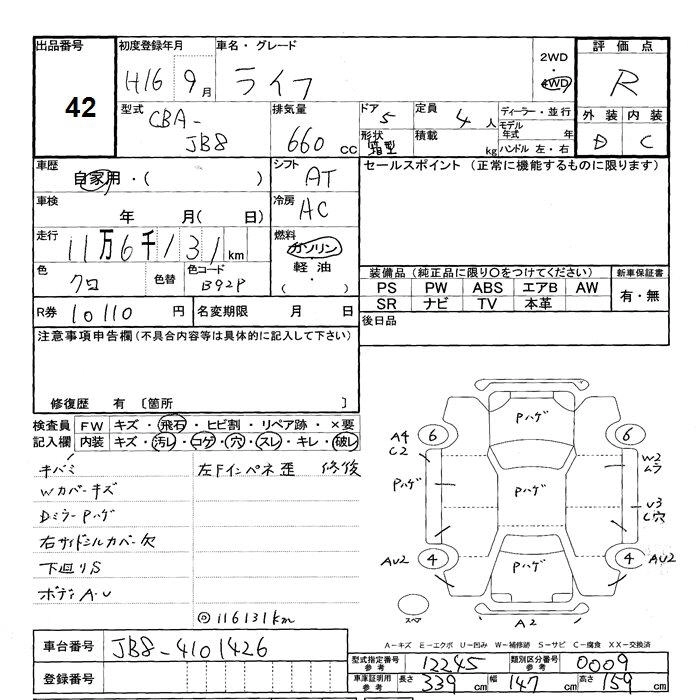 出品番号
42
初度登録年月
H16 9月
車名・グレード
ライフ
2WD
4WD
評価点
R
外装 内装
D C
型式
CBA-
JB8
排気量
660 cc
ドア
5
形状
箱型
定員
4 人
積載
kg
ディーラー・並行
モデル年式 年
ハンドル 左・右
車歴
自家用・( )
シフト
AT
セールスポイント (正常に機能するものに限ります)
車検
年 月( 日)
冷房
AC
走行
11万6千131km
燃料
ガソリン
軽油
( ・ )
色
クロ
色替
色コード
B92P
装備品 (純正品に限り○をつけてください)
新車保証書
PS PW ABS エアB AW
SR ナビ TV 本革
有・無
R券 10110 円
名変期限 月 日
後日品
注意事項申告欄(不具合内容等は具体的に記入して下さい)
修復歴 有 〔箇所 〕
検査員
記入欄
FW キズ・飛石・ヒビ割・リペア跡・×要
内装 キズ・汚レ・コゲ・穴・スレ・キレ・破レ
キバミ
左Fインペネ歪 修復
Wカバーキズ
Dミラー Pハゲ
右サイドシルカバー欠
下廻りS
ボディ A・U
◎116131km
Pハゲ
A4
C2
6
6
W2
ムラ
Pハゲ
Pハゲ
U3
C穴
AU2
4
Pハゲ
4
AU2
スペア
A2
A-キズ E-エクボ U-凹み W-補修跡 S-サビ C-腐食 XX-交換済
車台番号
JB8-4101426
型式指定番号
参考
12245
類別区分番号
参考
0009
登録番号
車庫証明用
参考
長さ 339 cm
幅 147 cm
高さ 159 cm